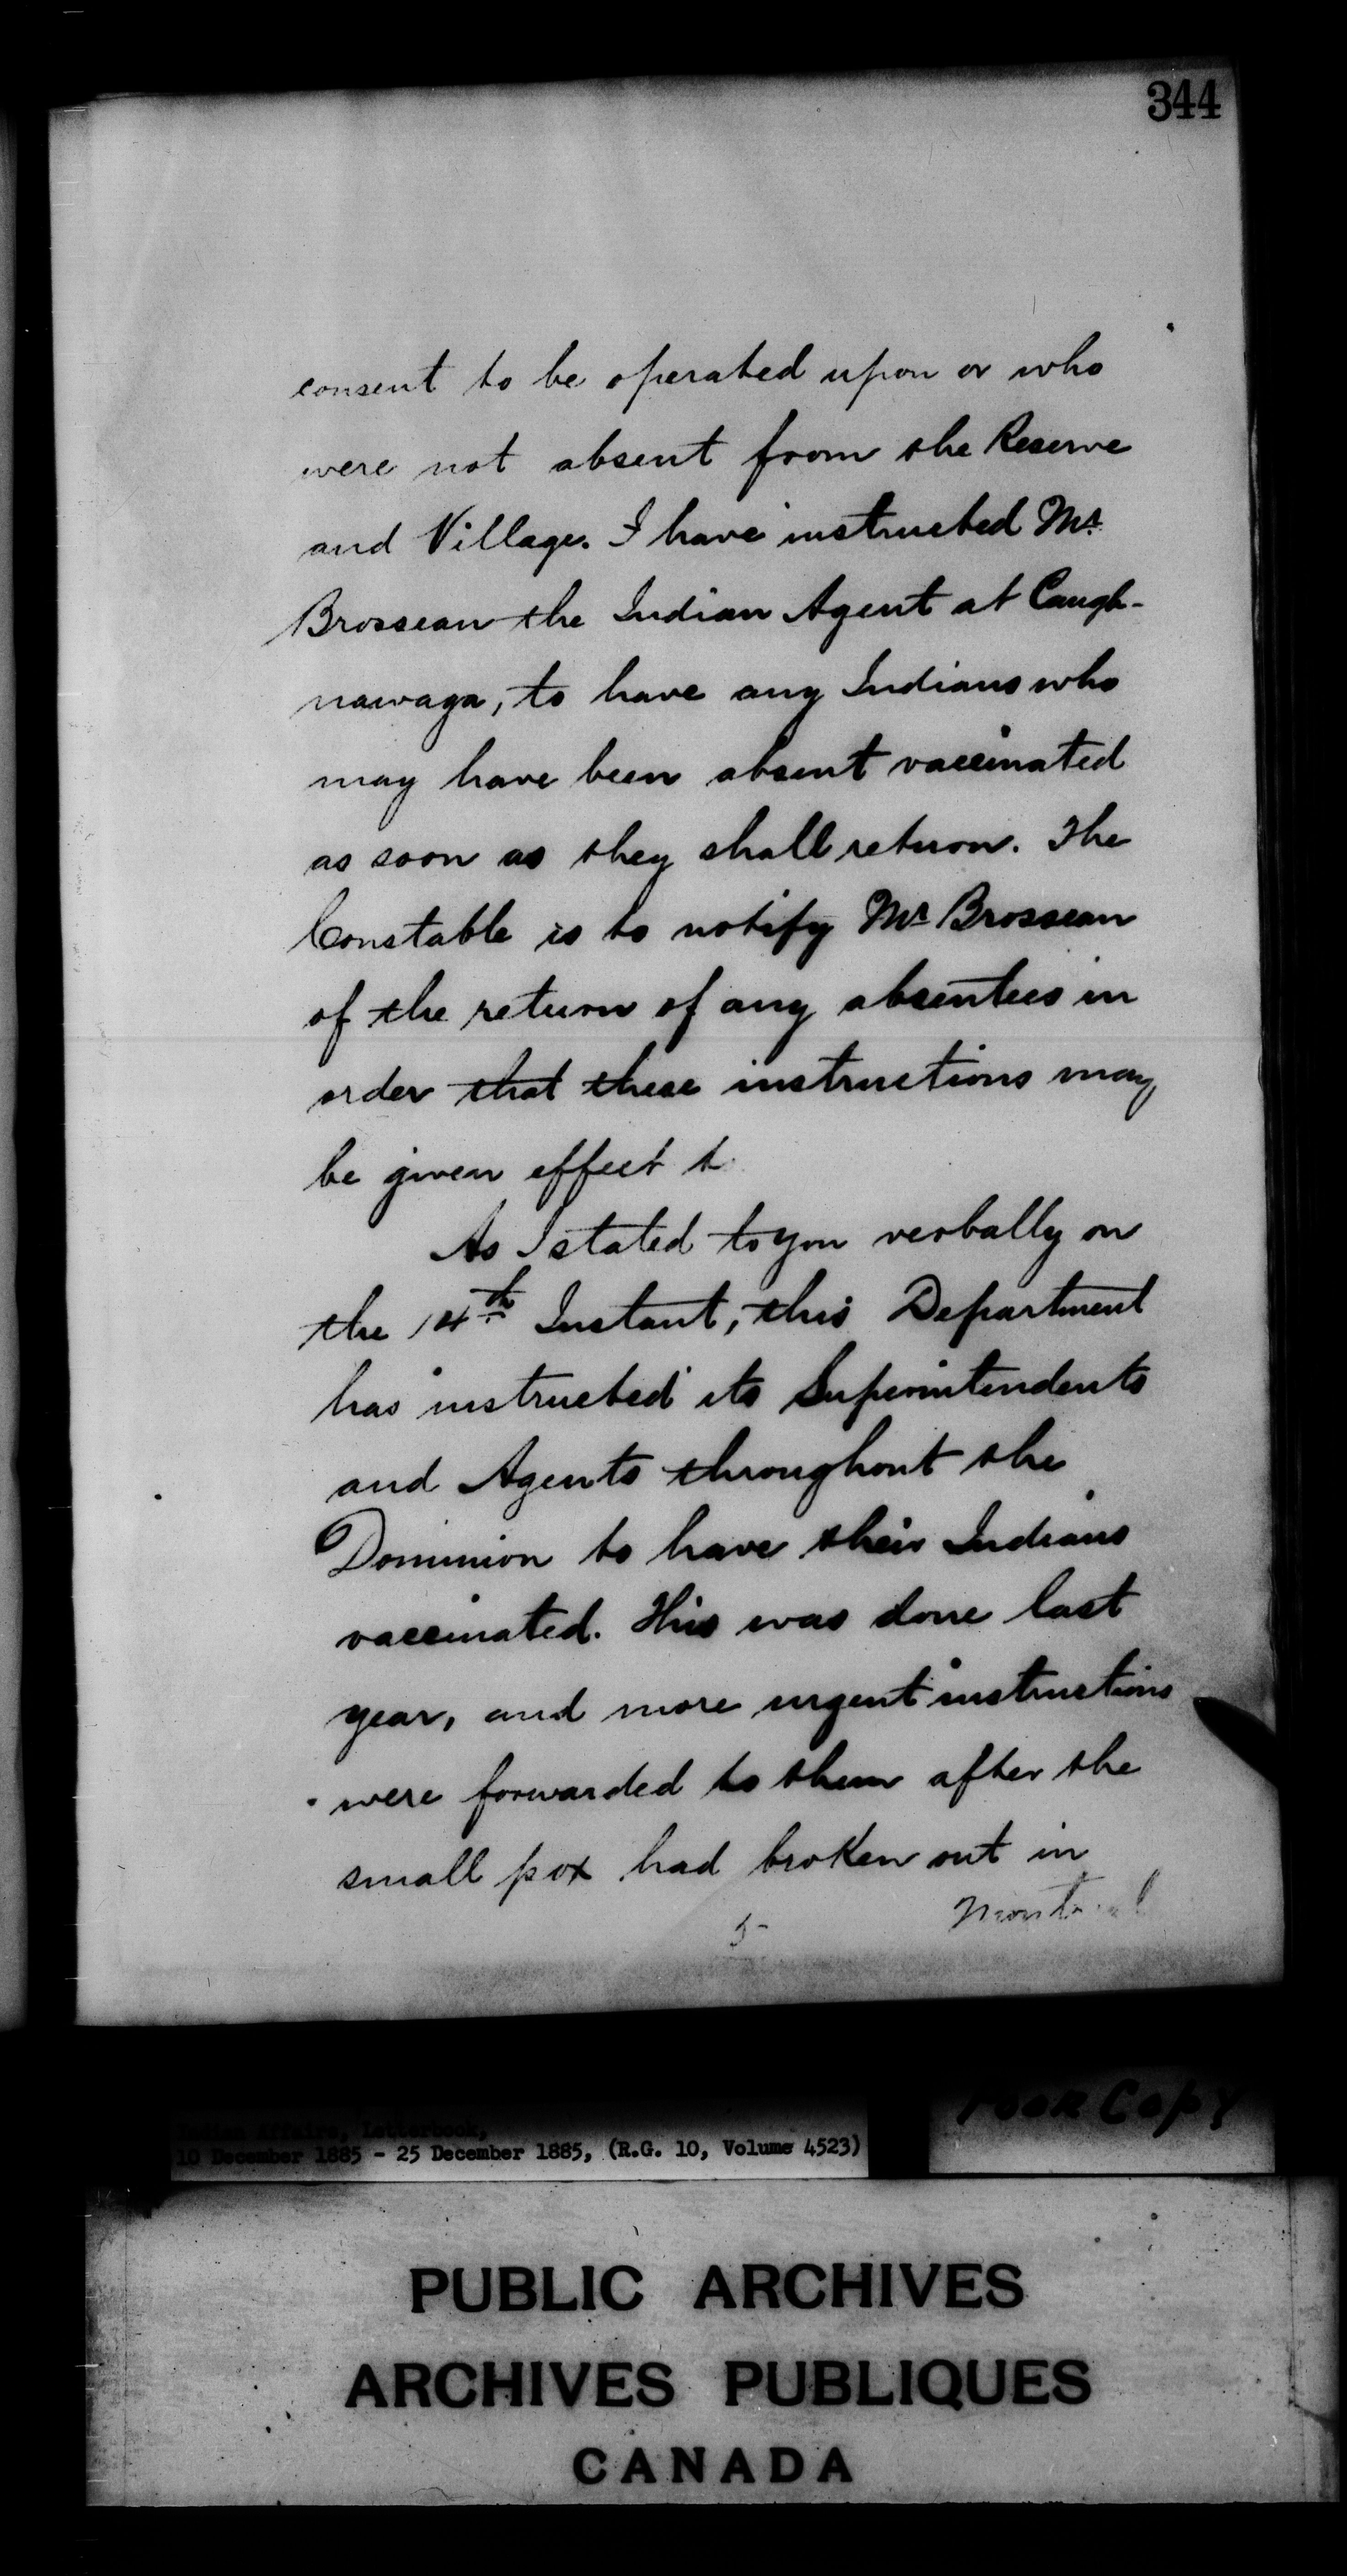 344
consent to be operated upon or who
were not absent from the Reserve
and Village. I have instructed Mr.
Brosseau the Indian Agent at Caugh-
nawaga, to have any Indians who
may have been absent vaccinated
as soon as they shall return. The
Constable is to notify Mr. Brosseau
of the return of any absentees in
order that these instructions may
be given effect to
As I stated to you verbally on
the 14th Instant, this Department
has instructed its Superintendents
and Agents throughout the
Dominion to have their Indians
vaccinated. This was done last
year, and more urgent instructions
were forwarded to them after the
small pox had broken out in
Montreal
Poor Copy
Indian Affairs, Letterbook,
10 December 1885 - 25 December 1885, (R.G. 10, Volume 4523)
PUBLIC ARCHIVES
ARCHIVES PUBLIQUES
CANADA